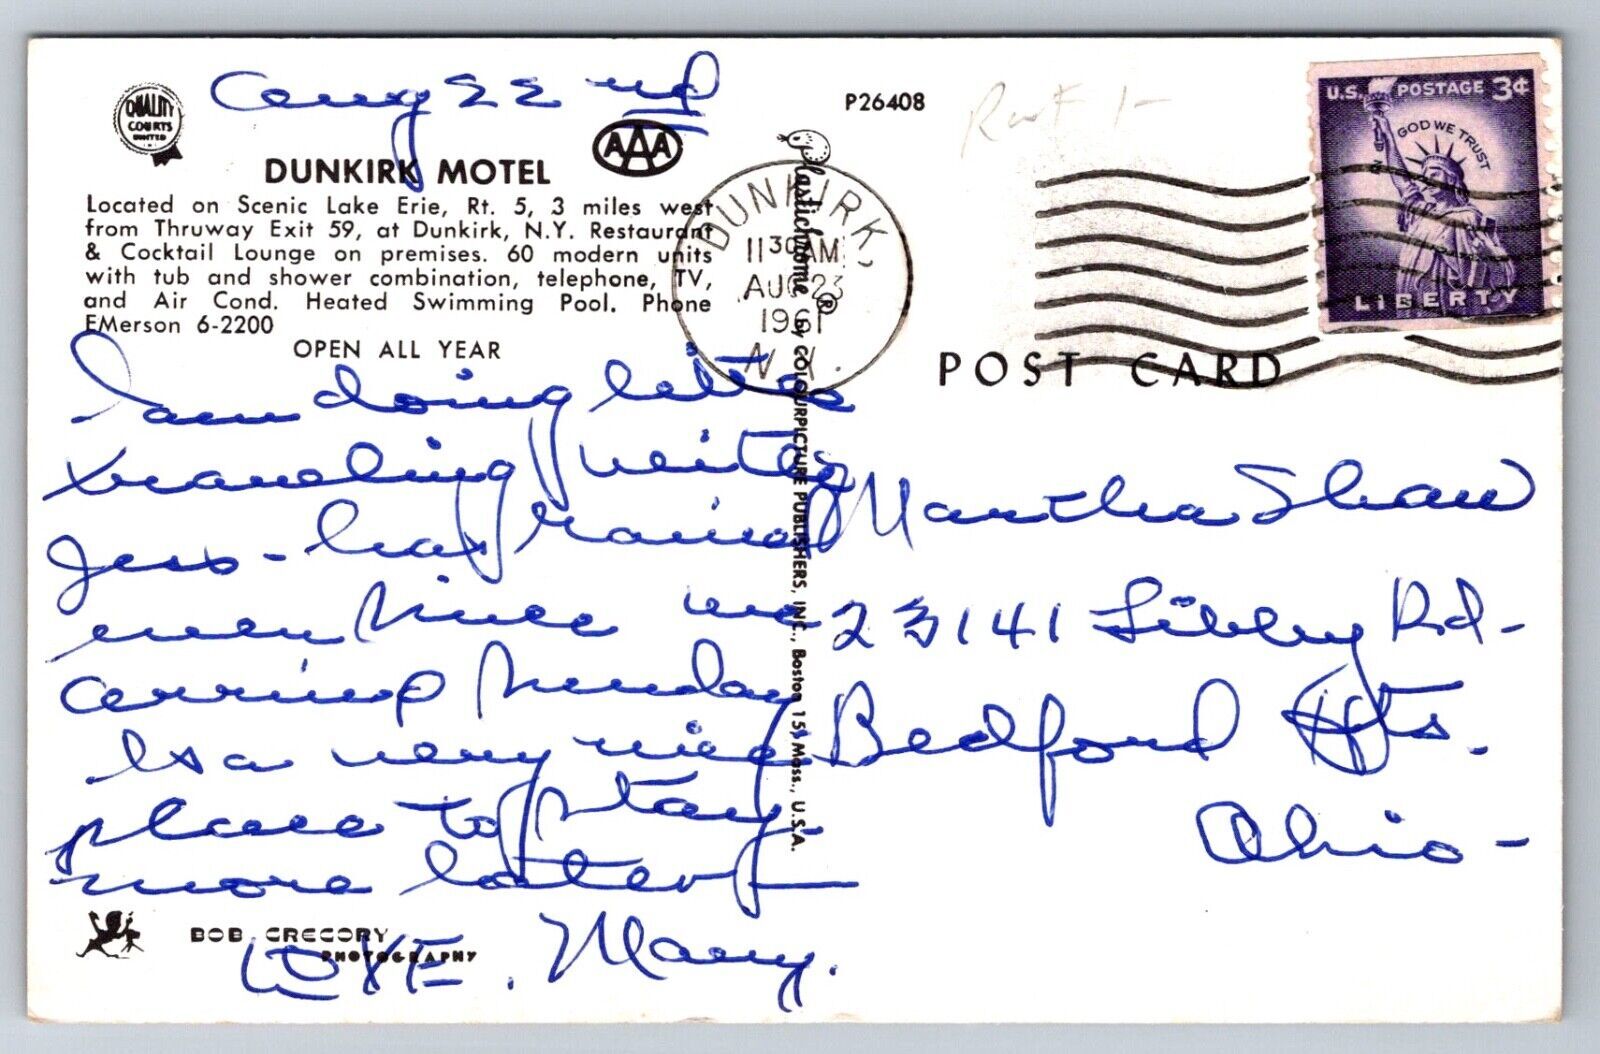 Aug 22 nd
QUALITY
COURTS
UNITED
AAA
DUNKIRK MOTEL
Located on Scenic Lake Erie, Rt. 5, 3 miles west
from Thruway Exit 59, at Dunkirk, N.Y. Restaurant
& Cocktail Lounge on premises. 60 modern units
with tub and shower combination, telephone, TV,
and Air Cond. Heated Swimming Pool. Phone
EMerson 6-2200
OPEN ALL YEAR
I am doing little
traveling visiting
Jess - has rained
ever since we
arrived Sunday
Is a very nice
place to stay
more later
LOVE. Mary.
BOB GREGORY
PHOTOGRAPHY
Plastichrome ® by COLOURPICTURE PUBLISHERS, INC., Boston 15, Mass., U.S.A.
P26408
DUNKIRK,
11 30 AM
AUG 23
1961
N.Y.
U.S. POSTAGE 3¢
IN GOD WE TRUST
LIBERTY
POST CARD
Martha Shaw
23141 Libby Rd-
Bedford Hts.
Ohio-